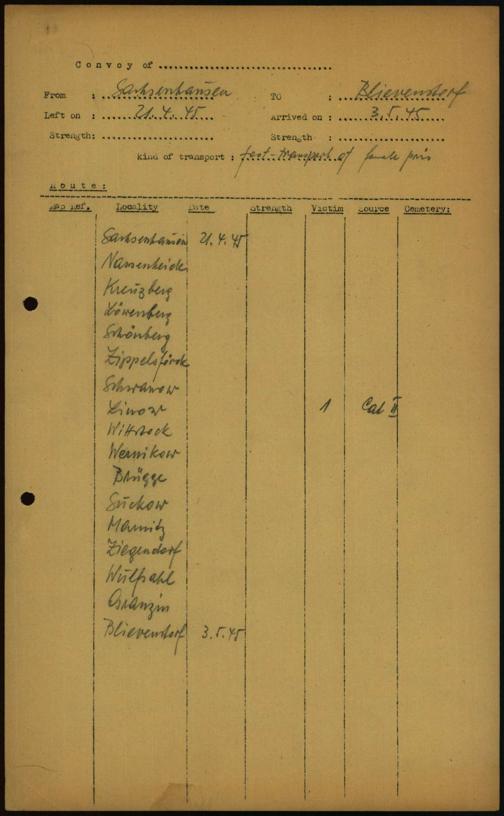 Convoy of
From : Sachsenhausen TO : Blievenstorf
Left on : 21.4.45 Arrived on : 3.5.45
Strength: Strength :
kind of transport : foot-transport of female pris
Route:
Map Ref. Locality Date Strength Victim Source Cemetery:
Sachsenhausen 21.4.45
Nassenheide
Kreuzberg
Löwenberg
Schönberg
Zippelsförde
Schwanow
Linow 1 Cat II
Wittstock
Wernikow
Brügge
Suckow
Marnitz
Ziegendorf
Wulfsahl
Granzin
Blievenstorf 3.5.45